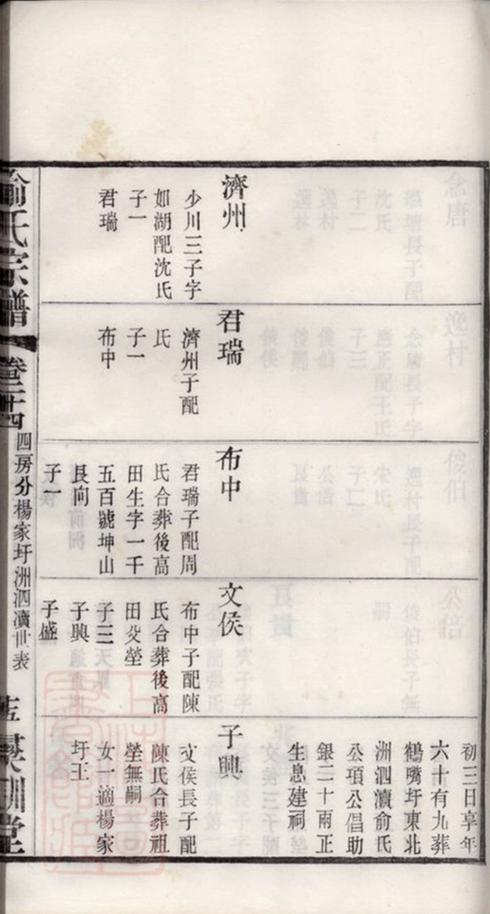 濟州
少川三子字
如湖配沈氏
子一
君瑞
君瑞
濟州子配
氏
子一
布中
布中
君瑞子配周
氏合葬後高
田生字一千
五百號坤山
艮向
子一
文侯
布中子配陳
氏合葬後高
田殳塋
子三
子興
子盛
初三日享年
六十有九葬
鶴嘴圩東北
洲泗瀆俞氏
公項公倡助
銀二十兩正
生息建祠
子興
文侯長子配
陳氏合葬祖
塋無嗣
女一適楊家
圩王
俞氏宗譜
四房分楊家圩洲泗瀆世表